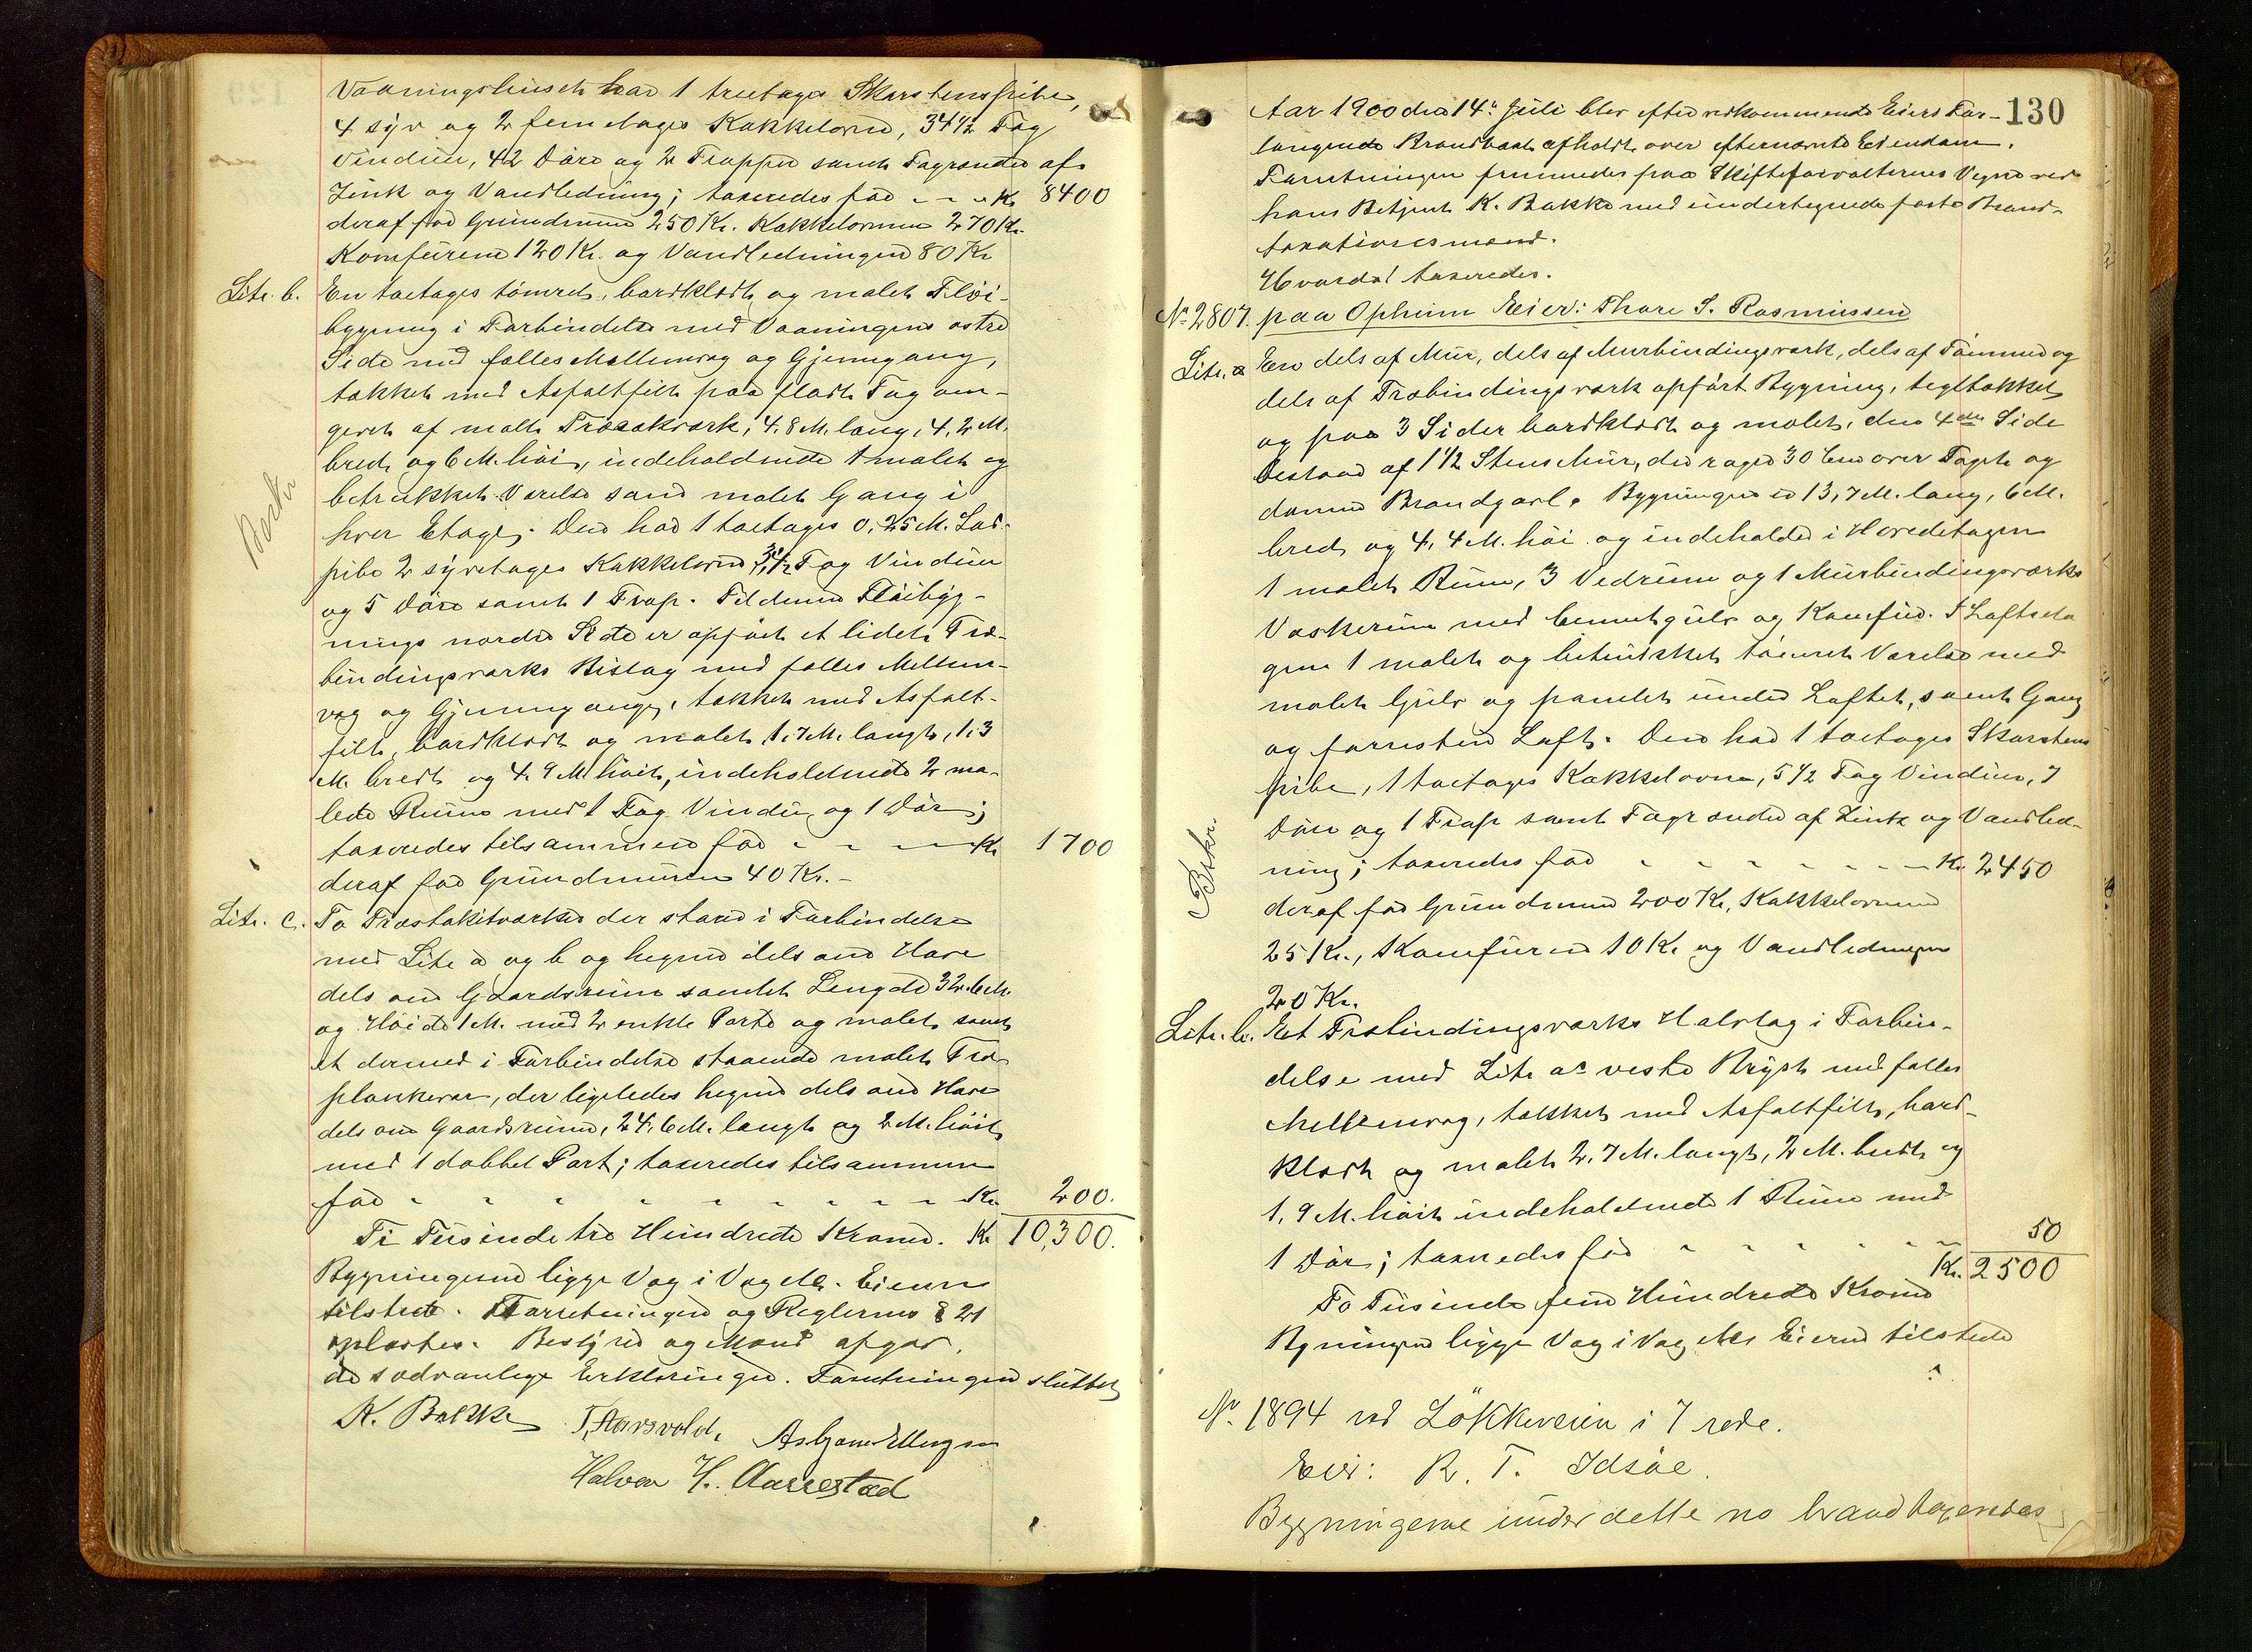 Vaaningshuset har 1 treetages Skorstenspibe,
4 syv og 2 femetages Kakkelovne, 34 1/2 Fag
Vinduer, 42 Døre og 2 Trapper samt Tagrender af
Zink og Vandledning; taxeredes for - - - Kr. 8400
deraf for Grundmuren 250 Kr. Kakkelovnene 270 Kr.
Komfurene 120 Kr. og Vandledningen 80 Kr
Litr. b. En toetages tømret, bordklædt og malet Fløi-
bygning i Forbindelse med Vaaningens østre
Side med fælles Mellemvæg og Gjennemgang,
tækket med Asfaltfilt paa fladt Tag om-
givet af malt Træstakværk, 4.8 M. lang, 4,2 M.
bred og 6 M. høi, indeholdende 1 malet og
betrukket Værelse samt malet Gang i
hver Etage. Den har 1 toetages 0,25 M. Lod-
pibe 2 syvetages Kakkelovne, 3 1/2 Fag Vinduer
og 5 Døre samt 1 Trap. Til denne Fløibyg-
nings nordre Side er opført et lidet Træ-
bindingsværks Bislag med fælles Mellem-
væg og Gjennemgang, tækket med Asfalt-
filt, bordklædt og malet, 1,7 M. langt, 1,3
M. bredt og 4.9 M. høit, indeholdende 2 ma-
lede Rum med 1 Fag Vindu og 1 Dør;
taxeredes tilsammen for - - - Kr 1700
deraf for Grundmuren 40 Kr. -
Becker
Litr. c. To Træstakitværker der staar i Forbindelse
med Litr a og b og hegner dels om Have
dels om Gaardsrum samlet Længde 32.6 M.
og Høide 1 M. med 2 enkle Porte og malet samt
et dermed i Forbindelse staaende malet Træ-
plankevær, der ligeledes hegner dels om Have
dels om Gaardsrum, 24,6 M. langt og 2 M. høit
med 1 dobbel Port; taxeredes tilsammen
for - - - - - - - - - Kr. 200.
Ti Tusinde tre Hundrede Kroner. Kr 10,300.
Bygningerne ligge Væg i Væg M. Eieren
tilstede. Forretningen og Reglernes § 21
oplæstes. Bestyrer og Mænd afgav
de sædvanlige Erklæringer. Forretningen sluttet
K. Bakke T. Aarsvold, Asbjørn Ellingsen
Halvor H. Aarrestad
130
Aar 1900 den 14de Juli blev efter vedkommende Eiers For-
langende Brandtaxt afholdt over efternævnte Eiendom.
Forretningen fremmedes paa Skifteforvalterens Vegne ved
hans Betjent K. Bakke med undertegnede faste Brand-
taxationsmænd.
Hvorda taxeredes.
No 2807. paa Ophum Eier: Thore S. Rasmussen
Litr. a En dels af Mur, dels af Murbindingsværk, dels af Tømmer og
dels af Træbindingsværk opført Bygning, tegltækket
og paa 3 Sider bordklædt og malet, den 4de Side
bestaar af 1 1/2 Stens Mur, der rager 30 Cm over Taget og
danner Brandgavl. Bygningen er 13,7 M. lang, 6 M.
bred og 4,4 M. høi og indeholder i Hovedetagen
1 malet Rum, 3 Vedrum og 1 Murbindingsværks
Vaskerum med Cementgulv og Komfur. I Loftseta
gen 1 malet og betrukket tømret Værelse med
malet Gulv og panelet under Loftet, samt Gang
og forresten Loft. Den har 1 toetages Skorstens
pibe, 1 toetages Kakkelovn, 5 1/2 Fag Vinduer, 7
Døre og 1 Trap samt Tagrender af Zink og Vandled-
ning; taxeredes for - - - - - - - Kr. 2450
deraf for Grundmuren 200 Kr, Kakkelovnen
25 Kr., Komfuren 10 Kr og Vandledningen
20 Kr.
Litr. b. Et Træbindingsværks Halvtag i Forbin-
delse med Litr a's vestre Bryst med fælles
Mellemvæg, tækket med Asfaltfilt, bord-
klædt og malet 2.7 M. langt, 2 M. bredt og
1,9 M. høit indeholdende 1 Rum med
1 Dør; taxeredes for - - - - - - 50
Kr. 2500
To Tusinde fem Hundrede Kroner
Bygningen ligge Væg i Væg M Eieren tilstede
No 1894 ved Løkkeveien i 7 rode.
Eier: R. T. Idsøe.
Bygningerne under dette no brandtaxeredes